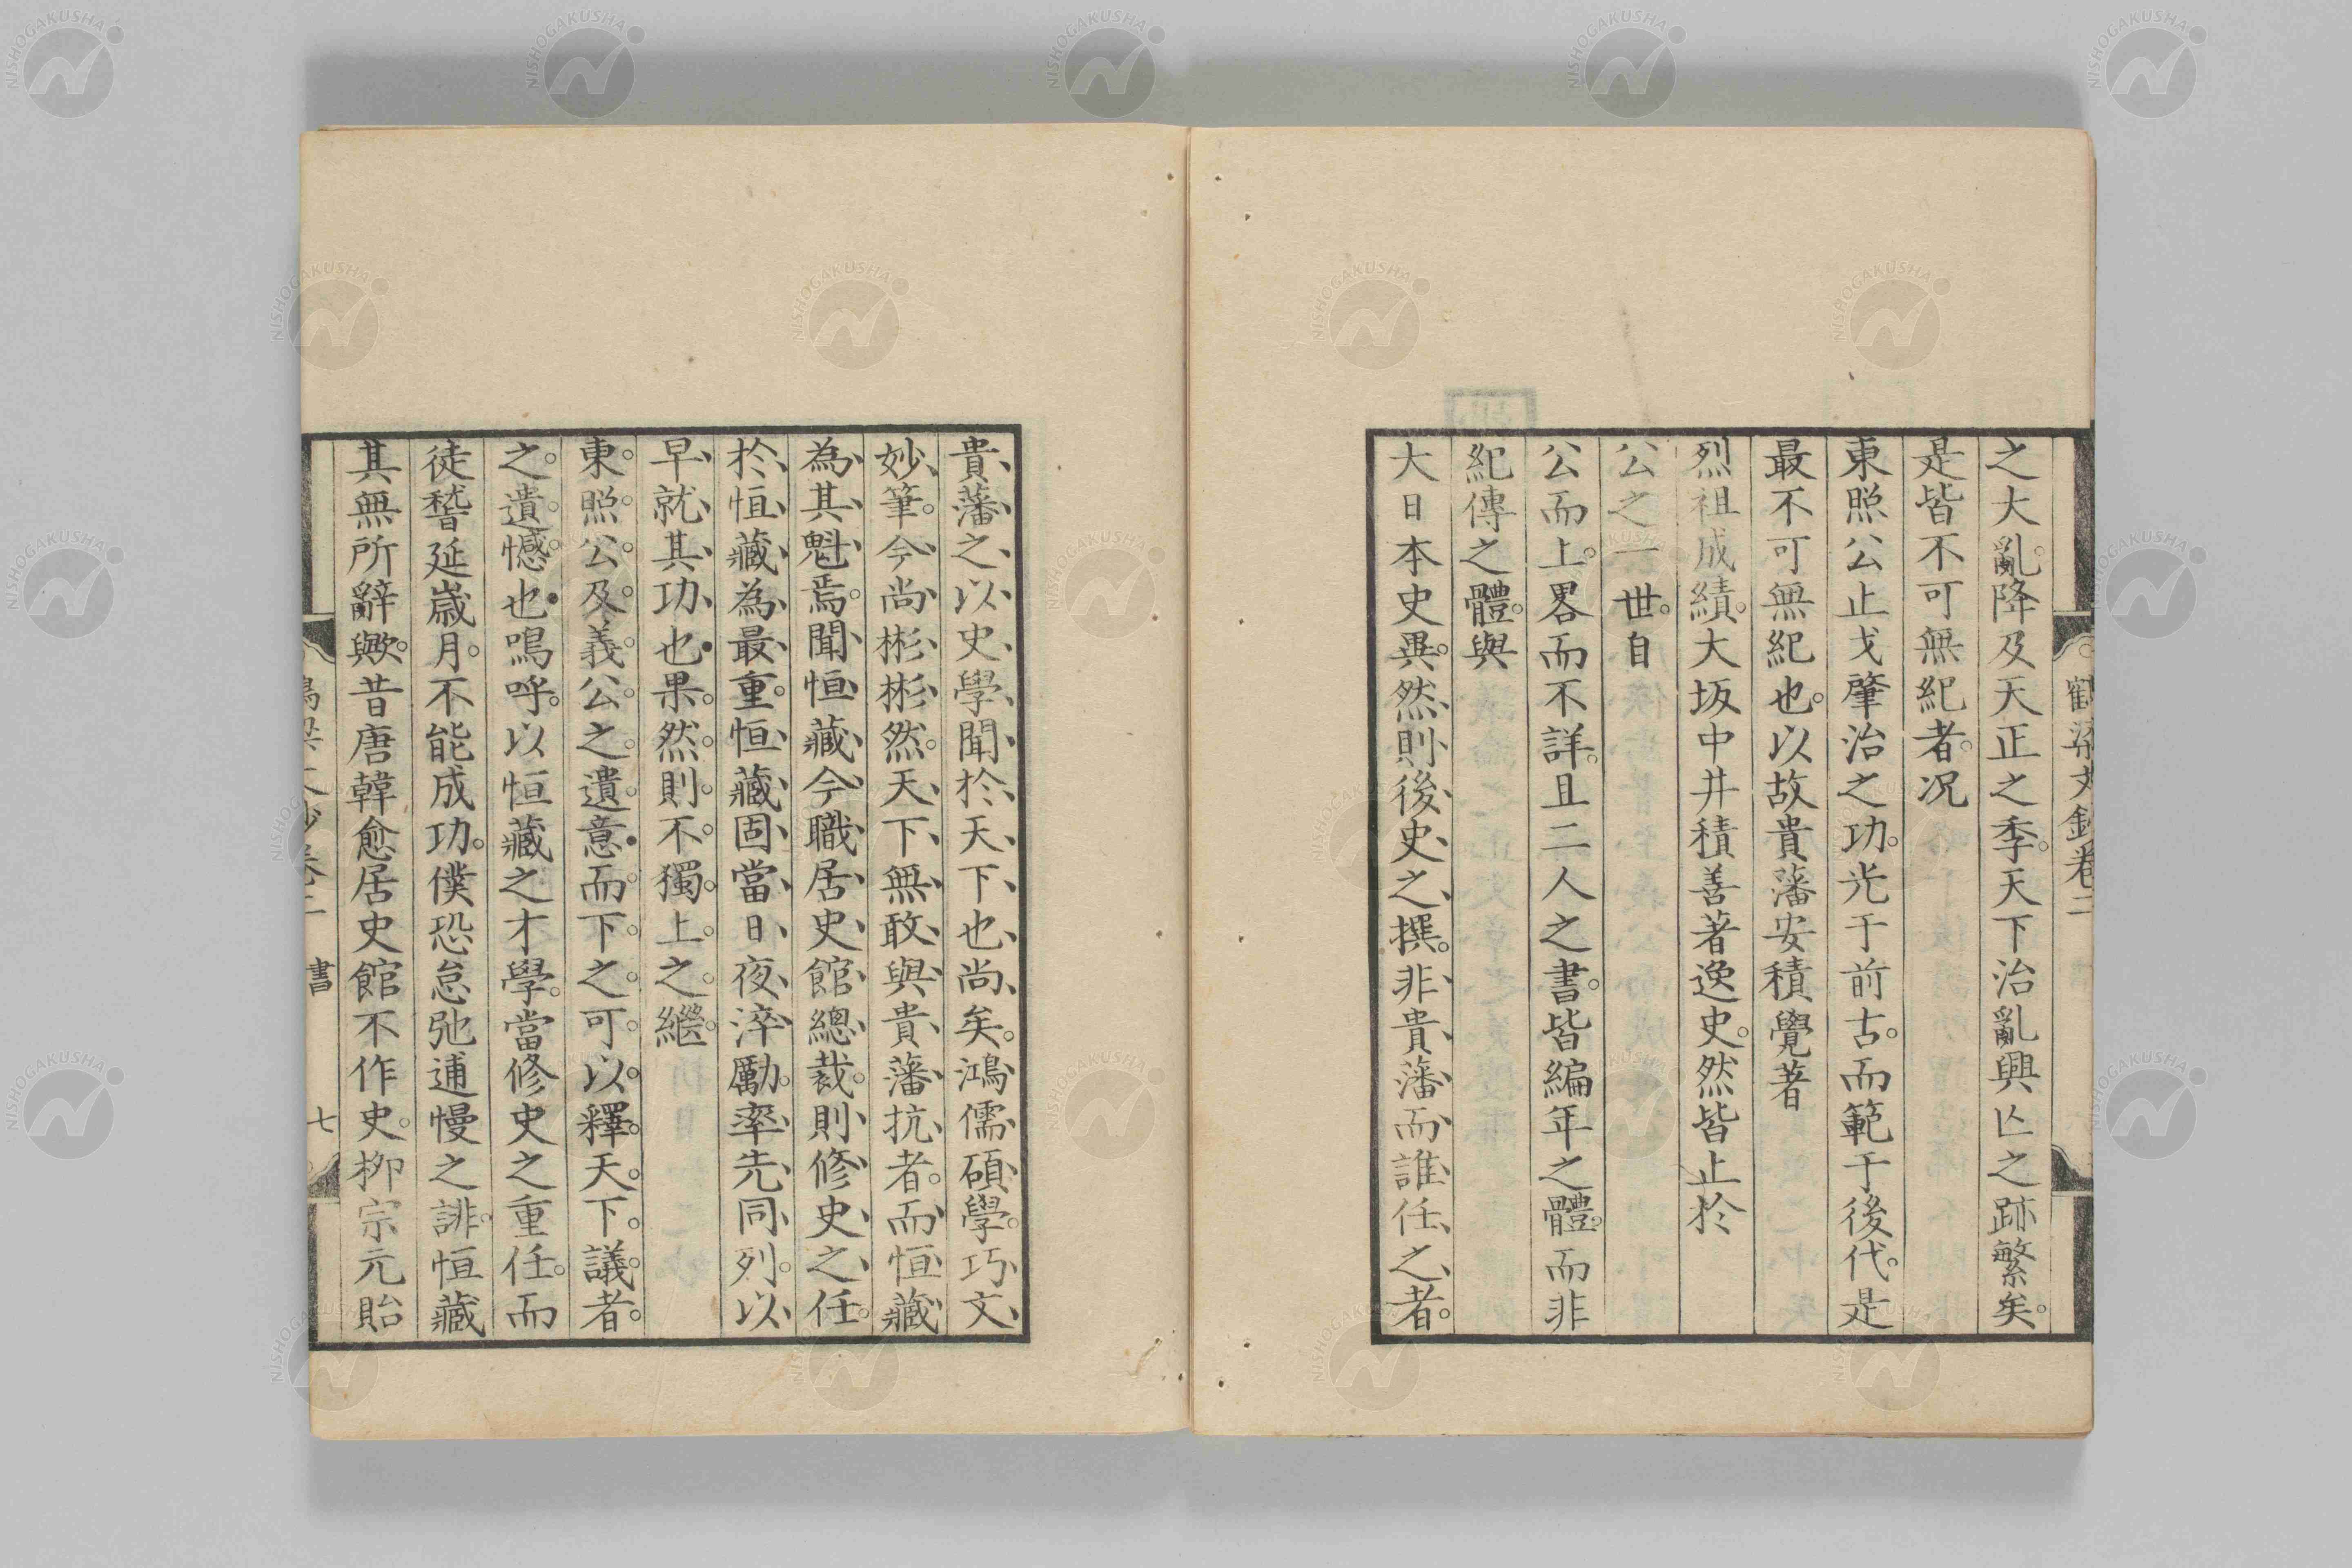 之大亂。降及天正之季。天下治亂興亾之跡繁矣。
是皆不可無紀者。况
東照公止戈肇治之功。光于前古。而範于後代。是
最不可無紀也。以故貴藩安積覺著
烈祖成績。大坂中井積善著逸史。然皆止於
公之一世。自
公而上。畧而不詳。且二人之書。皆編年之體。而非
紀傳之體。與
大日本史異。然則後史之撰。非貴藩而誰任之者。
貴藩之以史學聞於天下也尚矣。鴻儒碩學。巧文
妙筆。今尚彬彬然。天下無敢與貴藩抗者。而恒藏
為其魁焉。聞恒藏今職居史館總裁。則修史之任。
於恒藏為最重。恒藏固當日夜淬勵。率先同列。以
早就其功也。果然則不獨上之繼
東照公及義公之遺意。而下之可以釋天下議者
之遺憾也。嗚呼。以恒藏之才學。當修史之重任。而
徒稽延歲月。不能成功。僕恐怠弛逋慢之誹。恒藏
其無所辭歟。昔唐韓愈居史館不作史。栁宗元貽
卷二
書
七
NISHOGAKUSHA